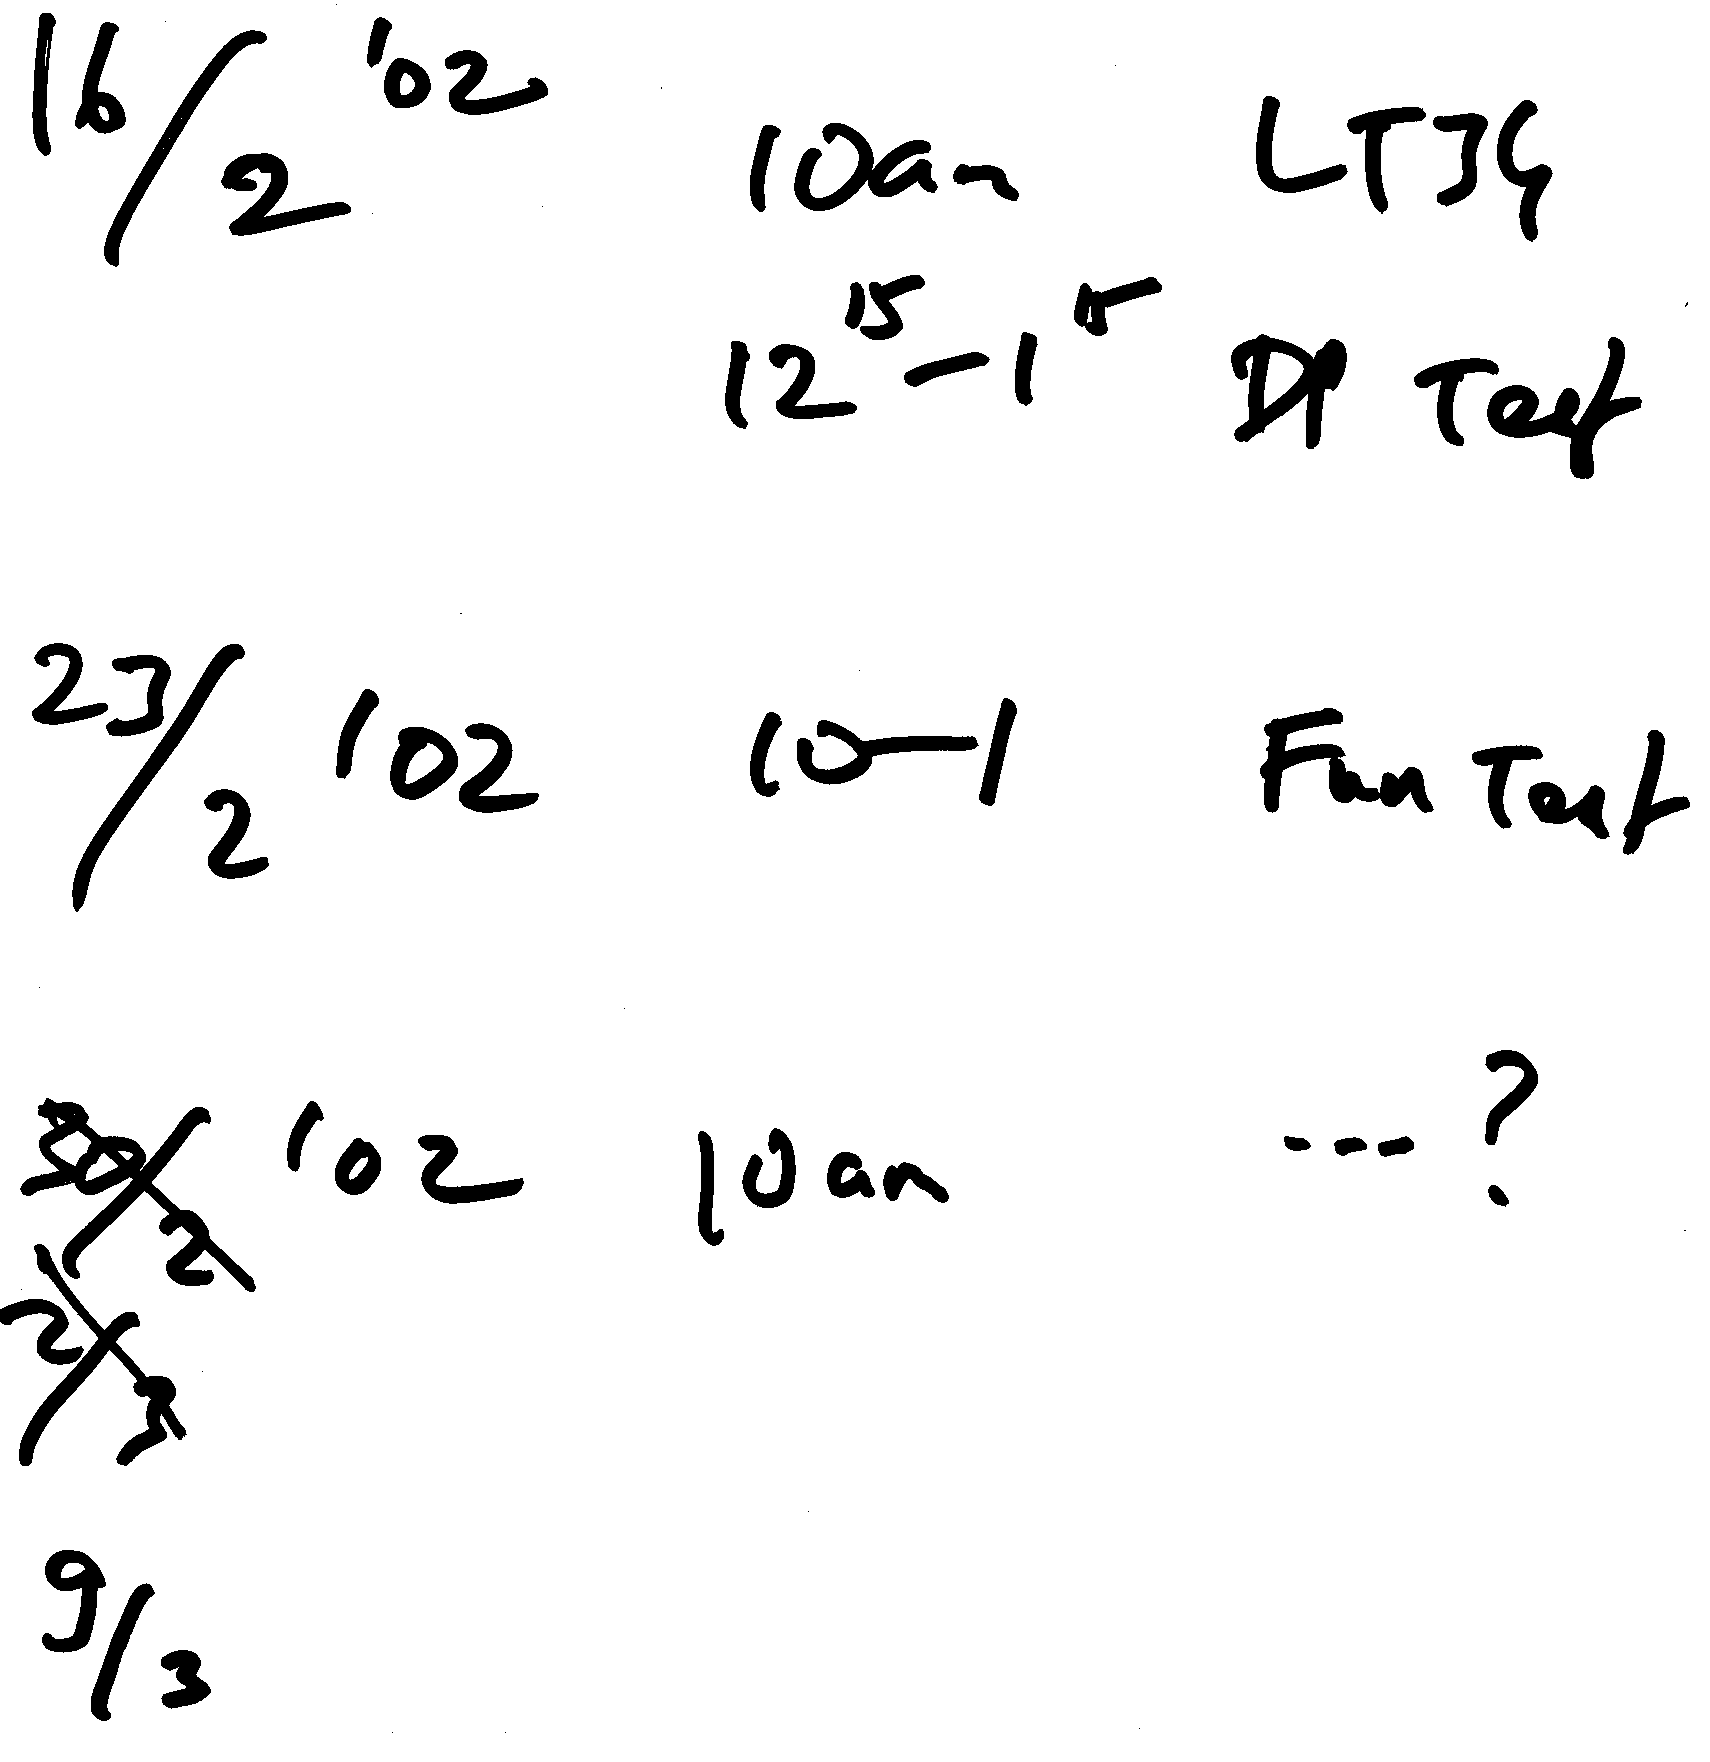 16/2 '02 10am LT34
12 15 - 1 15 DP Test
23/2 '02 10-1 Fun Test
30/2 '02 10am --- ?
2/3
9/3